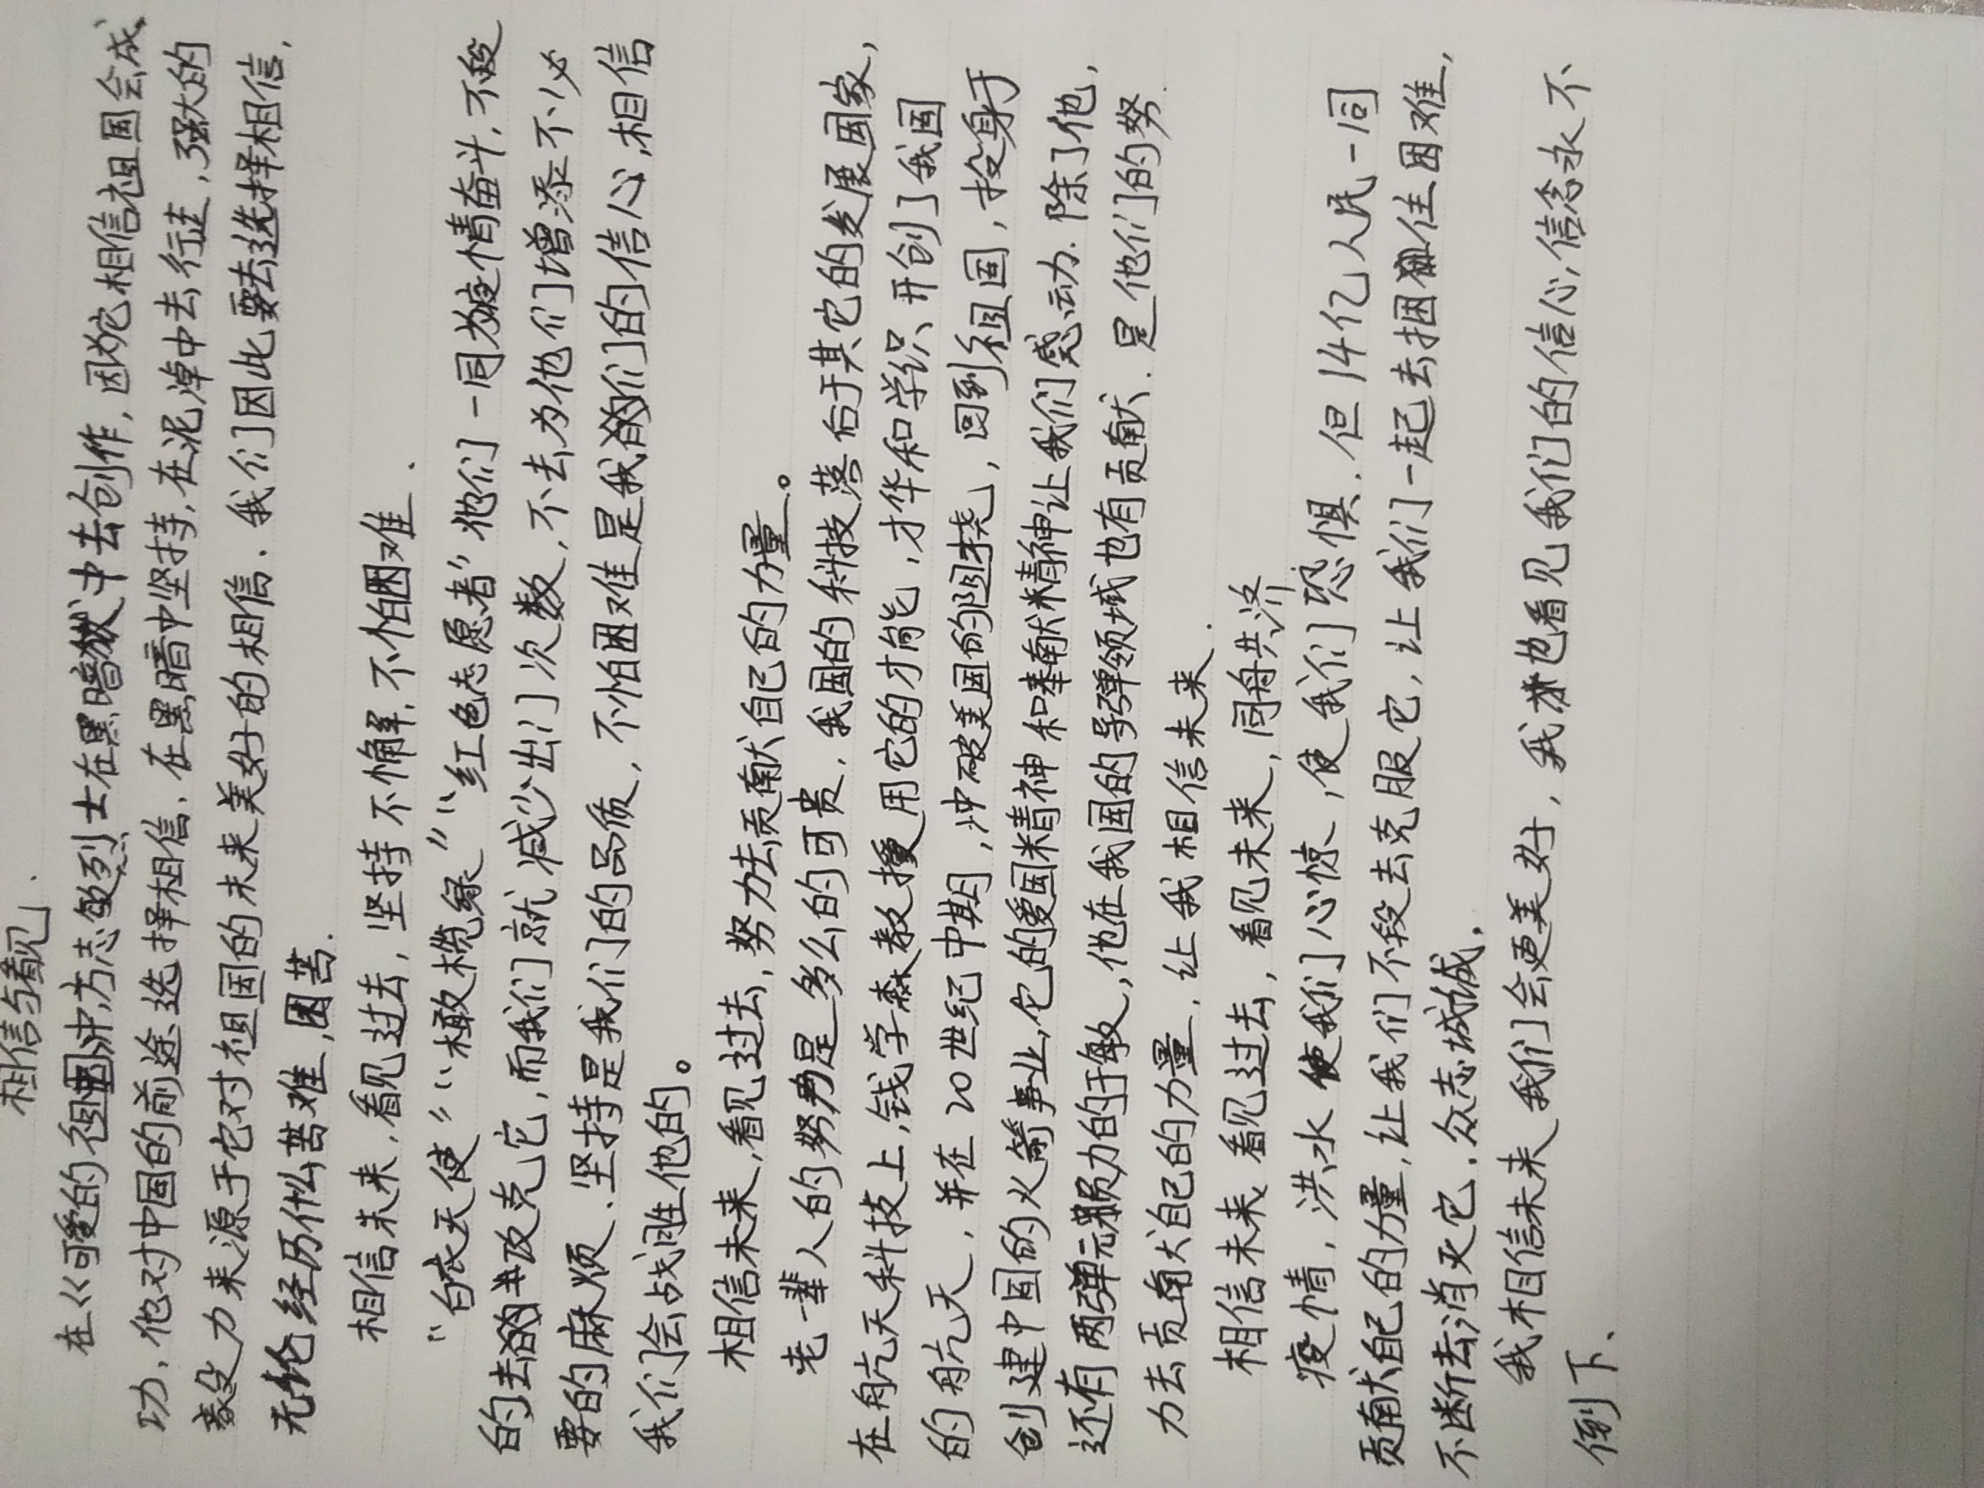 相信与看见.
在《可爱的祖国中,方志敏烈士在黑暗狱中去创作,因为它相信祖国会成
功,他对中国的前途选择相信.在黑暗中坚持,在泥淖中去行走,强大的
毅力来源于它对祖国的未来美好的相信.我们因此要去选择相信,
无论经历什么苦难,困苦.
相信未来,看见过去,坚持不懈,不怕困难.
“白衣天使”“橄榄绿”“红色志愿者”他们一同为疫情奋斗,不段
的去攻克它,而我们就减少出门次数,不去为他们增添不必
要的麻烦.坚持是我们的品质,不怕困难是我们的信心,相信
我们会战胜他的。
相信未来,看见过去,努力去贡献自己的力量。
老一辈人的努力是多么的可贵,我国的科技落后于其它的发展国家,
在航天科技上,钱学森教授用它的才能,才华和学识开创了我国
的航天,并在20世纪中期,冲破美国的阻挠,回到祖国,投身于
创建中国的火箭事业,它的爱国精神和奉献精神让我们感动.除了他,
还有两弹元勋的于敏,他在我国的导弹领域也有贡献.是他们的努
力去贡献自己的力量,让我相信未来.
相信未来看见过去,看见未来,同舟共济
疫情,洪水使我们心惊,使我们恐惧.但14亿人民一同
贡献自己的力量,让我们不段去克服它,让我们一起去捆住困难,
不断去消灭它.众志成城.
我相信未来我们会更美好,我也看见我们的信心,信念永不
倒下.